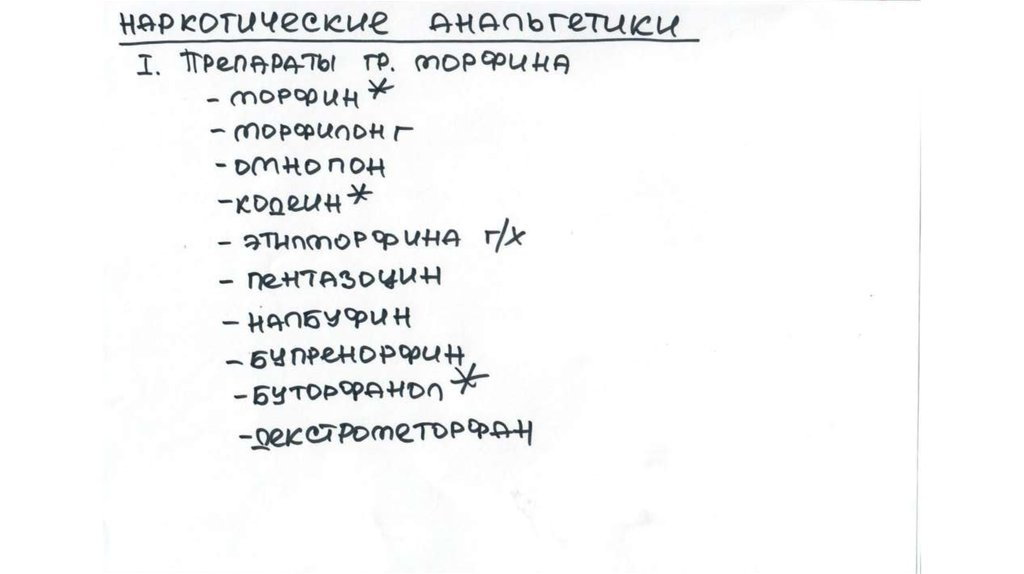 НАРКОТИЧЕСКИЕ АНАЛЬГЕТИКИ
I. ПРЕПАРАТЫ ГР. МОРФИНА
- МОРФИН *
- МОРФИЛОНГ
- ОМНОПОН
- КОДЕИН *
- ЭТИЛМОРФИНА Г/Х
- ПЕНТАЗОЦИН
- НАЛБУФИН
- БУПРЕНОРФИН
- БУТОРФАНОЛ *
- ДЕКСТРОМЕТОРФАН